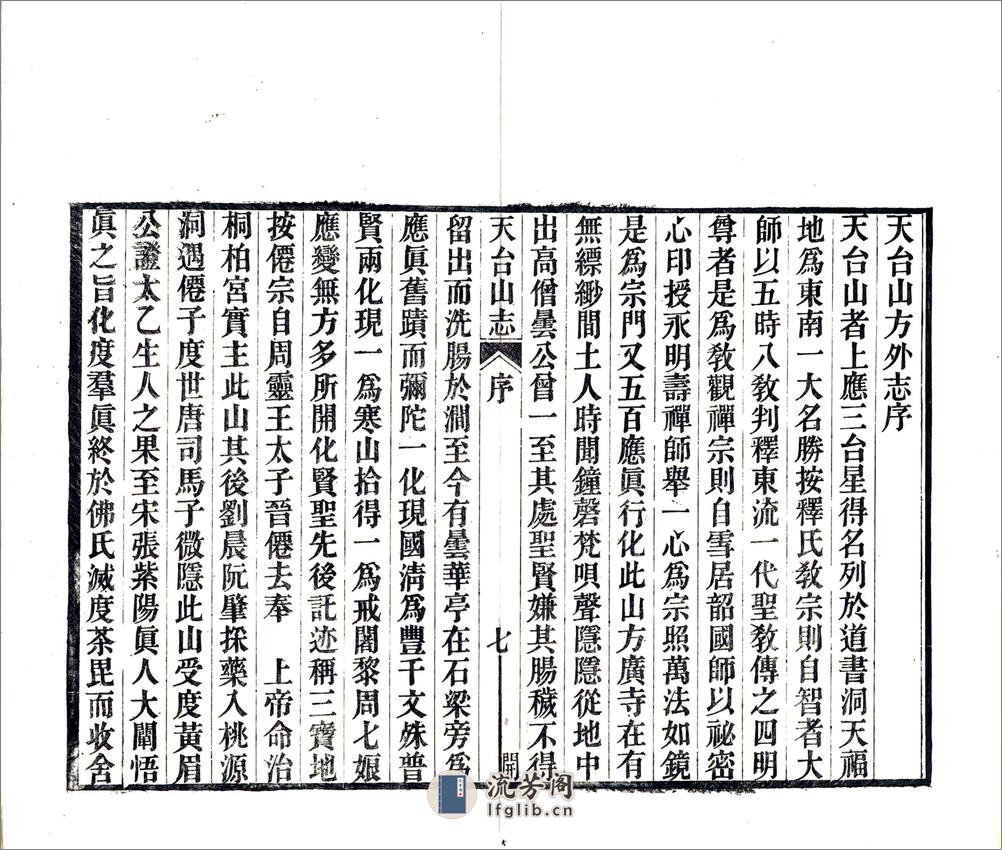 天台山方外志序
天台山者上應三台星得名列於道書洞天福
地爲東南一大名勝按釋氏敎宗則自智者大
師以五時八敎判釋東流一代聖敎傳之四明
尊者是爲敎觀禪宗則自雪居韶國師以祕密
心印授永明壽禪師舉一心爲宗照萬法如鏡
是爲宗門又五百應眞行化此山方廣寺在有
無縹緲間土人時聞鐘磬梵唄聲隱隱從地中
出高僧曇公曾一至其處聖賢嫌其腸穢不得
天台山志 序 七 開
留出而洗腸於澗至今有曇華亭在石梁旁爲
應眞舊蹟而彌陀一化現國淸爲豐千文殊普
賢兩化現一爲寒山拾得一爲戒闍黎周七娘
應變無方多所開化賢聖先後託迹稱三寶地
按僊宗自周靈王太子晉僊去奉 上帝命治
桐柏宮實主此山其後劉晨阮肇採藥入桃源
洞遇僊子度世唐司馬子微隱此山受度黃眉
公證太乙生人之果至宋張紫陽眞人大闡悟
眞之旨化度羣眞終於佛氏滅度茶毘而收舍
流芳阁
lfglib.cn